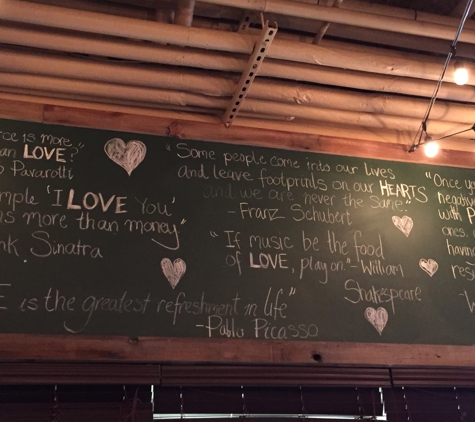 is more
an LOVE?"
Pavarotti
mple 'I LOVE You'
s more than money"
nk Sinatra
E is the greatest refreshment in life"
-Pablo Picasso
"Some people come into our lives
and leave footprints on our HEARTS
and we are never the same."
-Franz Schubert
"If music be the food
of LOVE, play on."-William
Shakespeare
"Once
with P
ones.
having